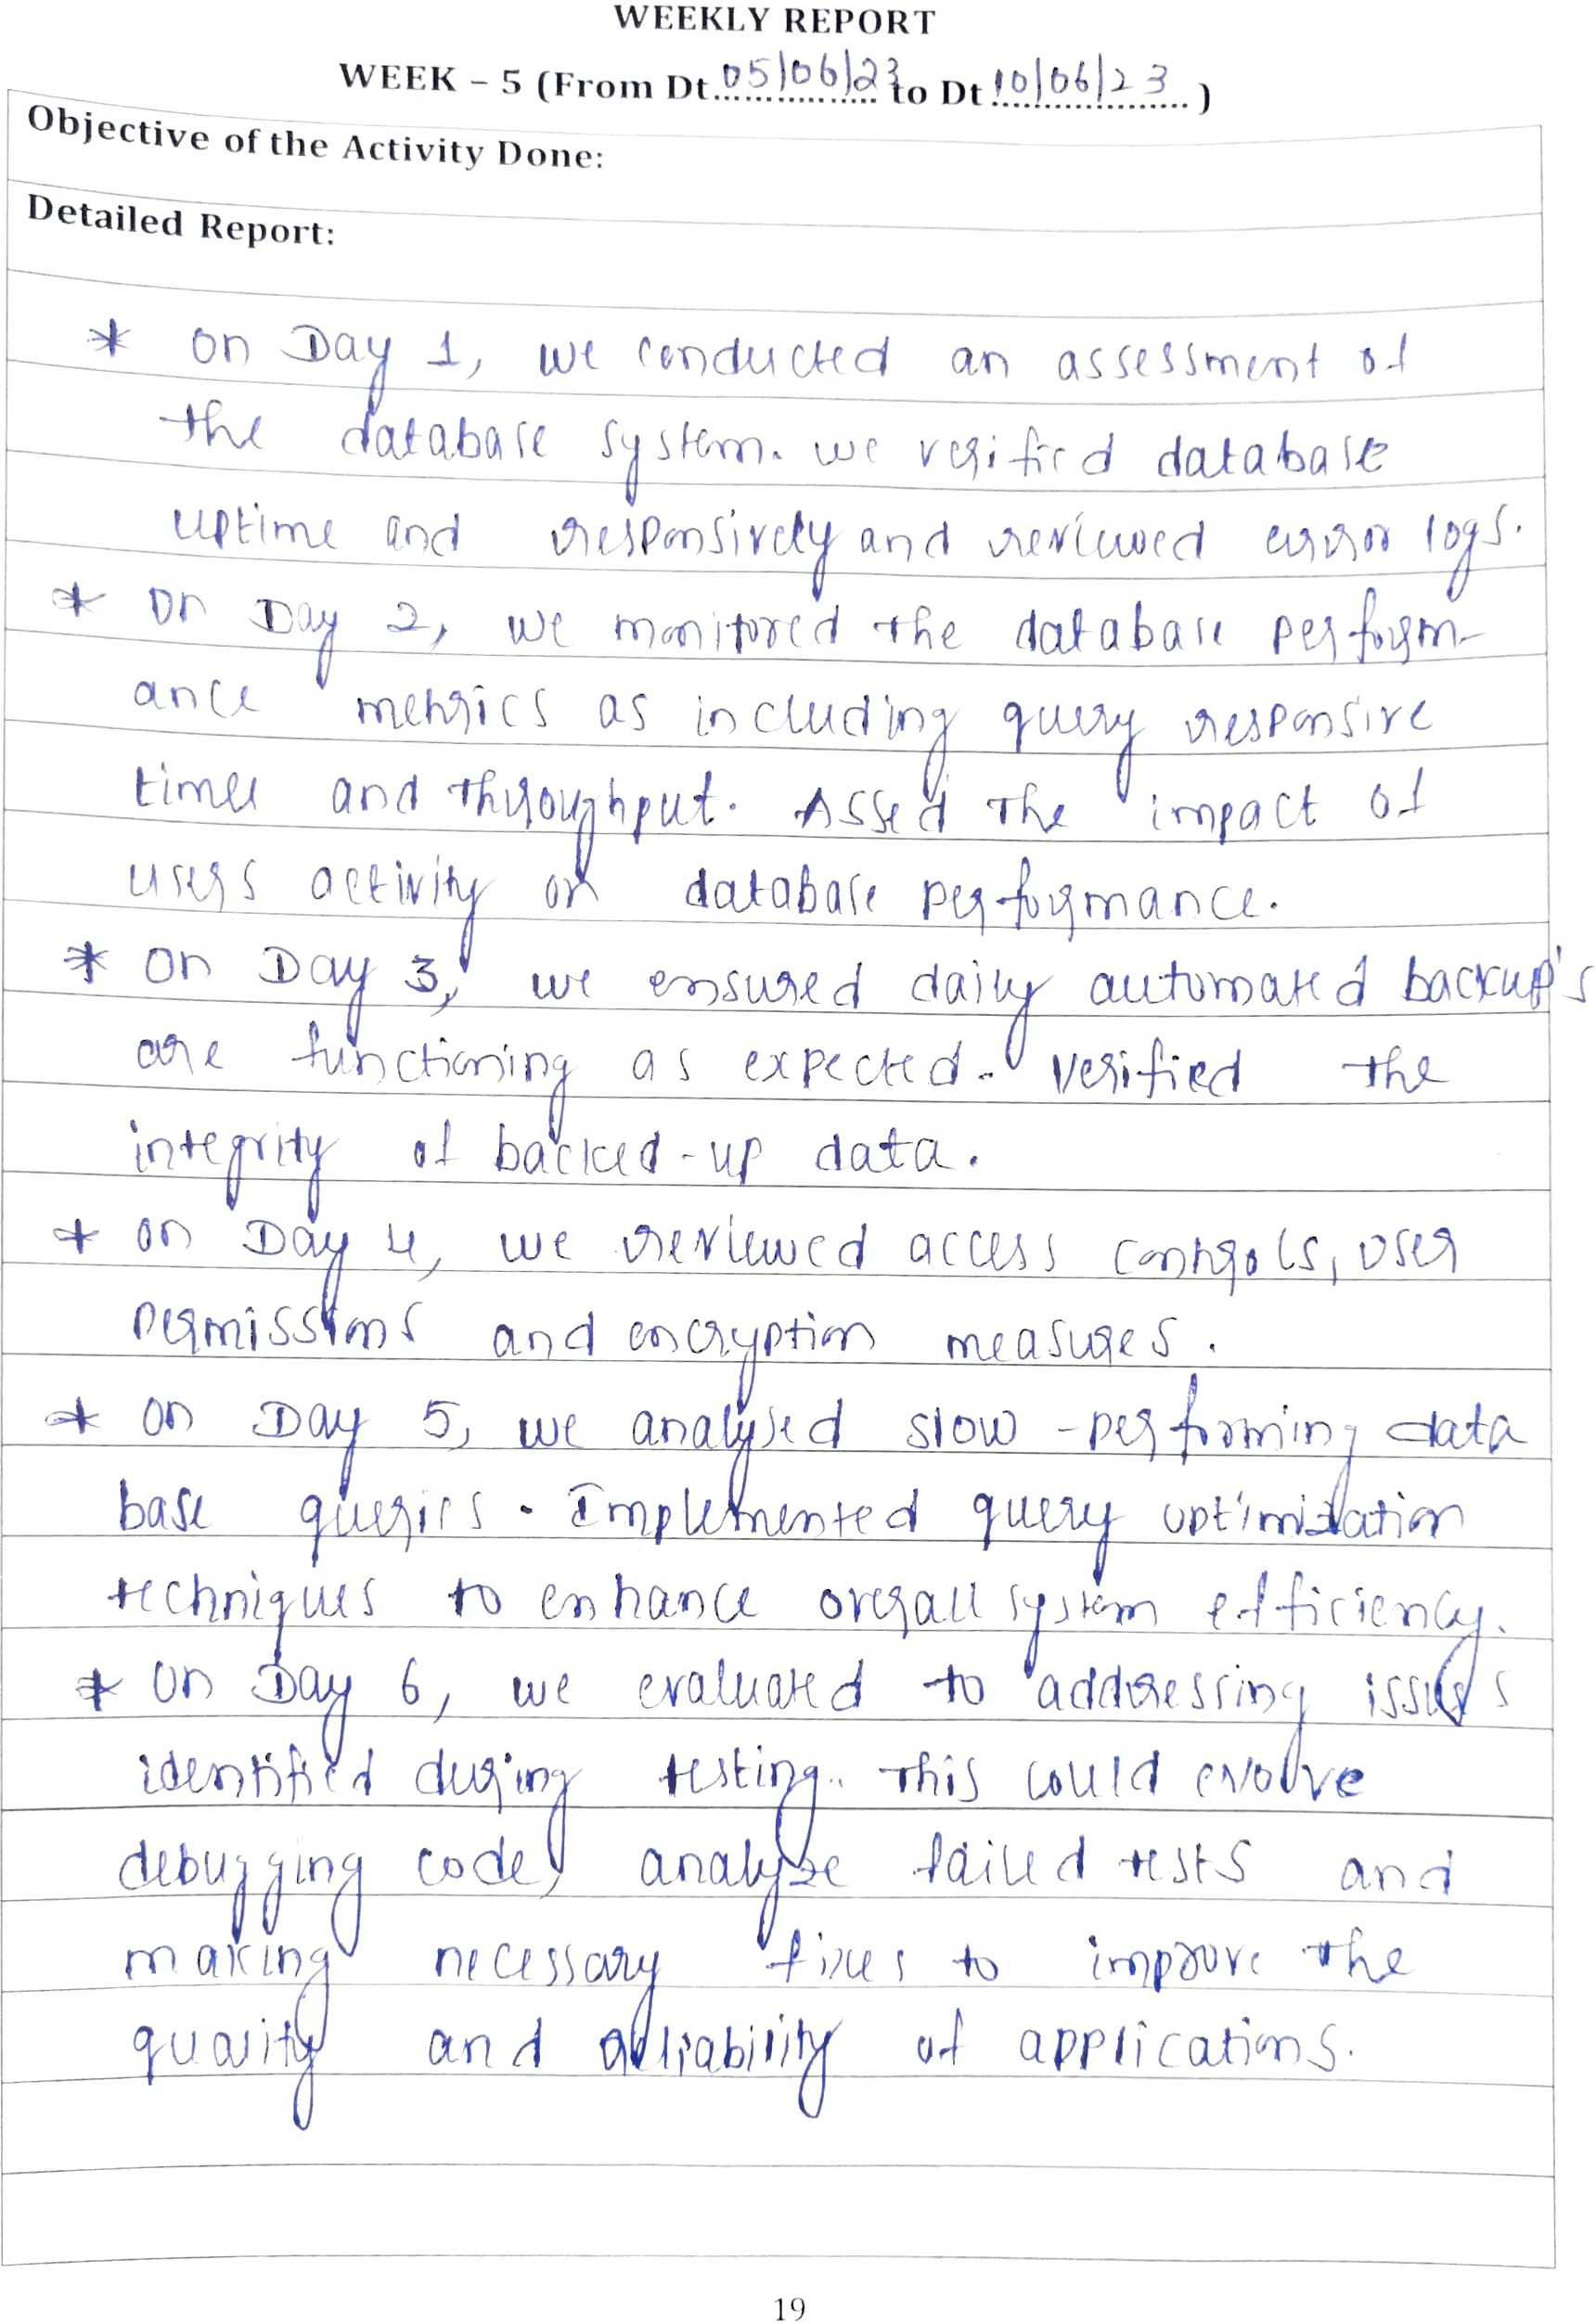 WEEKLY REPORT
WEEK – 5 (From Dt 05/06/23 to Dt 10/06/23)
Objective of the Activity Done:
Detailed Report:
* on Day 1, we conducted an assessment of
the database system. we verified database
uptime and responsively and reviewed error logs.
* on Day 2, we monitored the database perform-
ance metrics as including query responsive
times and throughput. Assed the impact of
users activity on database performance.
* on Day 3, we ensured daily automated backup's
are functioning as expected. Verified the
integrity of backed-up data.
* on Day 4, we reviewed access controls, user
permissions and encryption measures.
* on Day 5, we analysed slow-performing data
base queries. Implemented query optimization
techniques to enhance overall system efficiency.
* on Day 6, we evaluated to addressing issues
identified during testing. This could evolve
debugging code, analyze failed tests and
making necessary fixes to improve the
quality and reliability of applications.
19